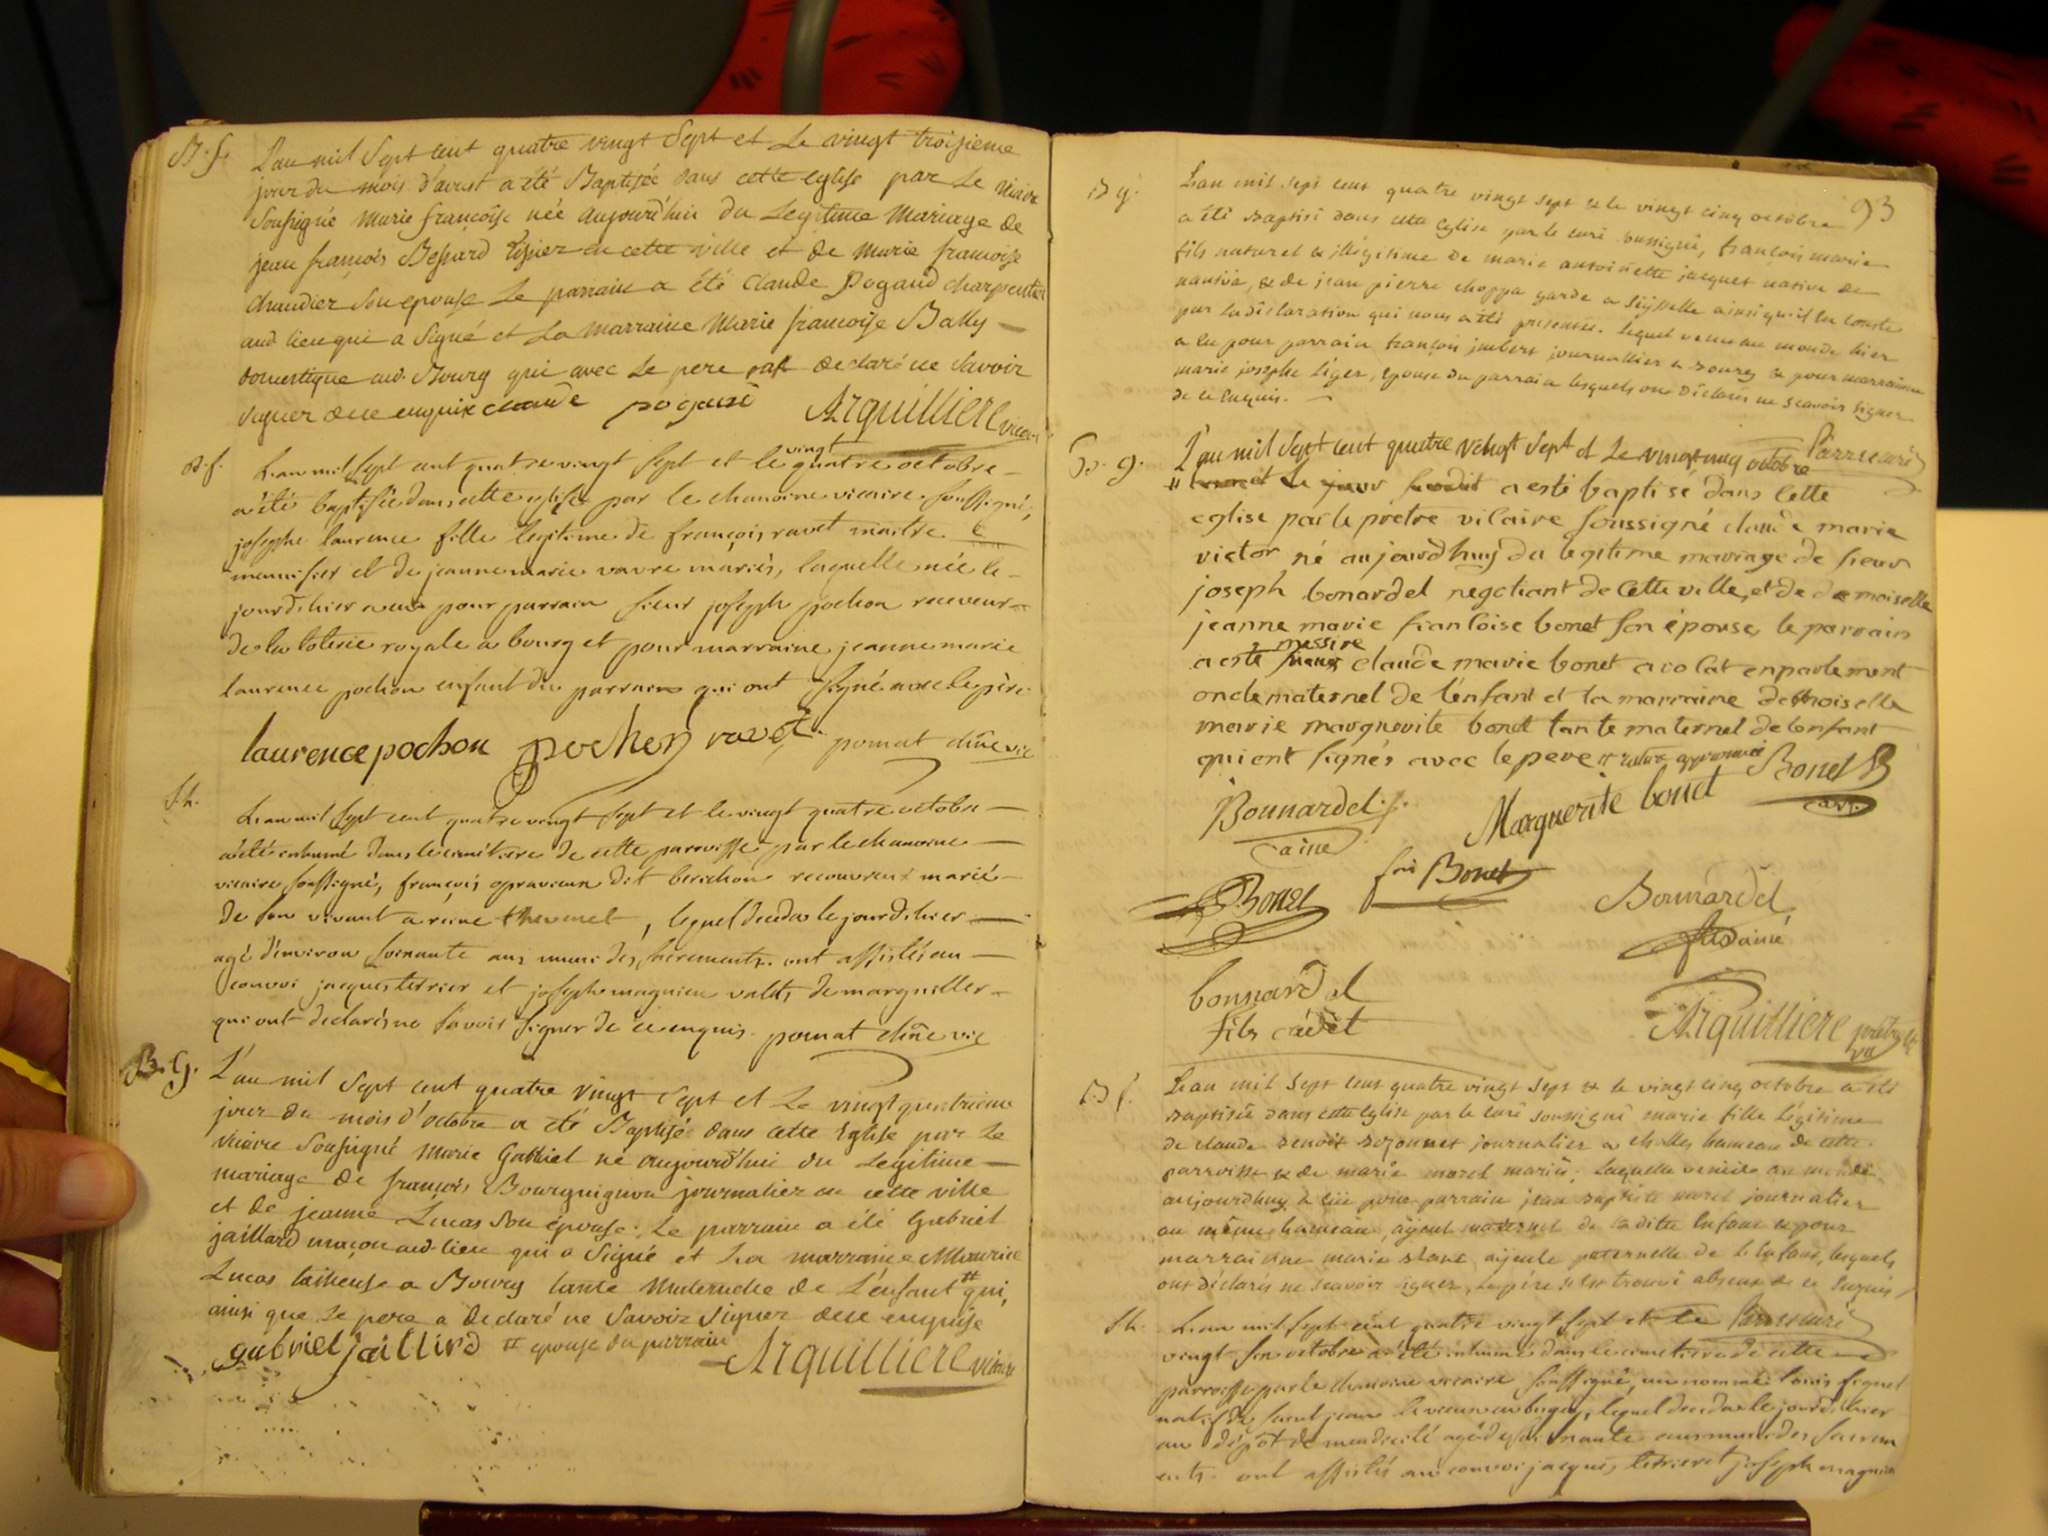 B. f. L'an mil Sept cent quatre vingt Sept et Le vingt troisieme
jour du mois d'aoust a été Baptisée dans cette eglise par Le vicaire
Soussigné Marie françoise née aujourd'hui du Legitime Mariage de
jean françois Bessard en cette ville et de Marie francoise
chaudier Son epouse Le parrain a été Claude Pogand charpentier
aud. lieu qui a Signé et La marraine Marie francoise Bally
domestique aud. Bourg qui avec Le pere ont declaré ne Savoir
Signer de ce enquis claude pogand Arquilliere vicaire
B. f. L'an mil sept cent quatre vingt sept et le vingt quatre octobre
a été baptisée dans cette eglise par le chanoine vicaire soussigné,
josephe laurence fille legitime de françois ravet maitre
menuisier et de jeanne marie vavre mariés, laquelle née le
jour d'hier a eu pour parrain sieur joseph pochon receveur
de la loterie royale a bourg et pour marraine jeanne marie
laurence pochon enfant du parrain qui ont signé avec le père
laurence pochon pochon ravet pomat chne vic
S. h. L'an mil sept cent quatre vingt sept et le vingt quatre octobre
a été inhumé dans le cimetiere de cette parroisse par le chanoine
vicaire soussigné, françois dit berichon recouvreur marié
de son vivant a reine thevenet, lequel décéda le jour d'hier
agé d'environ soixante ans muni des sacrements. ont assisté au
convoi jacques terrier et joseph magnien valets de marguiller
qui ont declarés ne savoir signer de ce enquis. pomat chne vic
B. G. L'an mil Sept cent quatre vingt Sept et Le vingt quatrieme
jour du mois d'octobre a été Baptisé dans cette Eglise par Le
vicaire Soussigné Marie Gabriel né aujourd'hui du Legitime
mariage de françois Bourguignon journalier en cette ville
et de jeanne Lucas Son épouse. Le parrain a été Gabriel
jaillard maçon aud. lieu qui a Signé et La marraine Maurice
Lucas tailleuse a Bourg tante Maternelle de L'enfant # qui,
ainsi que Le pere a declaré ne Savoir Signer de ce enquise
gabriel jaillard # epouse du parrain Arquilliere vicaire
93
B g. L'an mil sept cent quatre vingt sept & le vingt cinq octobre
a été Baptisé dans cette Eglise par le curé soussigné, françois marie
fils naturel & illégitime de marie antoinette jacquet native de
nantua, & de jean pierre choppa garde a Seÿsselle ainsi qu'il en conste
par la déclaration qui nous a été presentée. lequel venu au monde hier
a eu pour parrain françois jmbert journallier a Bourg & pour marraine
marie josephe Léger, epouse du parrain lesquels ont déclarés ne scavoir signer
de ce Enquis.
B. g. L'an mil Sept cent quatre vingt Sept et Le vingt cinq octobre
a esté baptisé dans Cette
eglise par le pretre vicaire Soussigné claude marie
victor né aujourdhuy du legitime mariage de sieur
joseph bonardel negotiant de Cette ville, et de demoiselle
jeanne marie francoise bonet son épouse, le parrain
a esté messire claude marie bonet avocat en parlement
oncle maternel de l'enfant et la marraine demoiselle
marie marguerite bonet tante maternel de lenfant
qui ont signés avec le pere
Bonnardel. Marguerite bonet Bonet
ainé
Bonet Bonet Bonnardel,
fils ainé
bonnardel
fils cadet Arquilliere pretre
vic
B f. L'an mil sept cent quatre vingt sept & le vingt cinq octobre a été
Baptisée dans cette Eglise par le curé soussigné marie fille Légitime
de claude Benoit journalier a challes hameau de cette
parroisse & de marie morel mariés; laquelle venüe au monde
aujourdhuy a eüe pour parrain jean Baptiste morel journalier
au même hameau, ayeul maternel de la ditte Enfant & pour
marraine marie ayeule paternelle de L'enfant, lesquels
ont déclarés ne scavoir signer, Le père s'est trouvé absent de ce Enquis
S h. L'an mil sept cent quatre vingt sept et le
vingt six octobre a été inhumé dans le cimetiere de cette
parroisse par le chanoine vicaire soussigné, un nommé louis
natif de saint jean en bugey, lequel décéda le jour d'hier
au dépôt de mendicité agé de soixante ans muni des sacrem
ents. ont assistés au convoi jacques terrier et joseph magnien